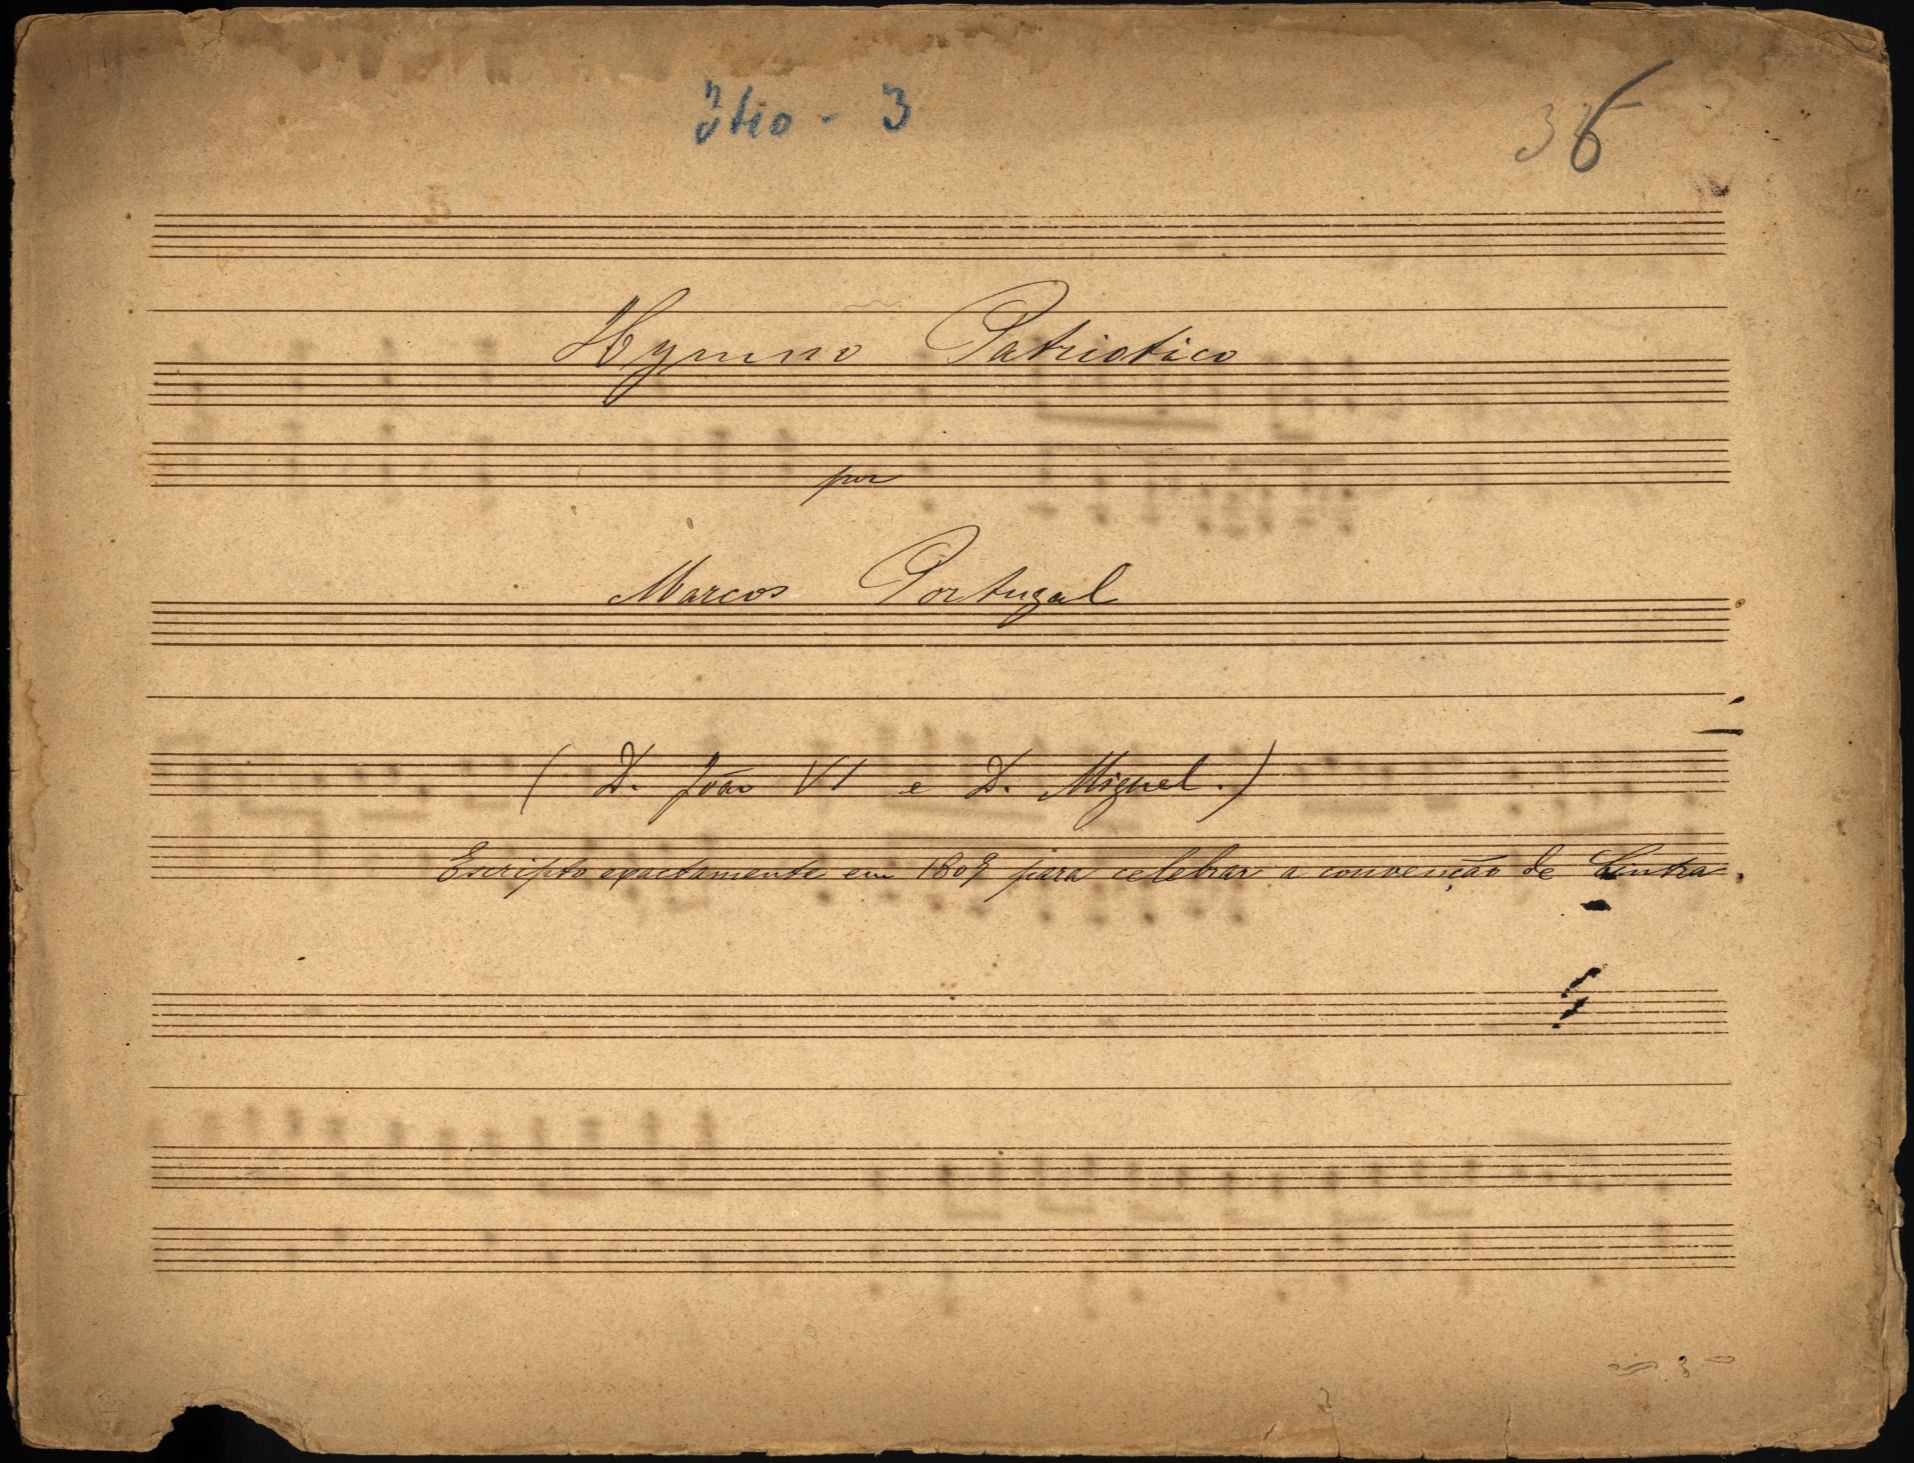 3
36
Hymno Patriotico
por
Marcos Portugal
( D. João VI e D. Miguel. )
Escripto expactamente em 1809 para celebrar a convenção de Cintra.